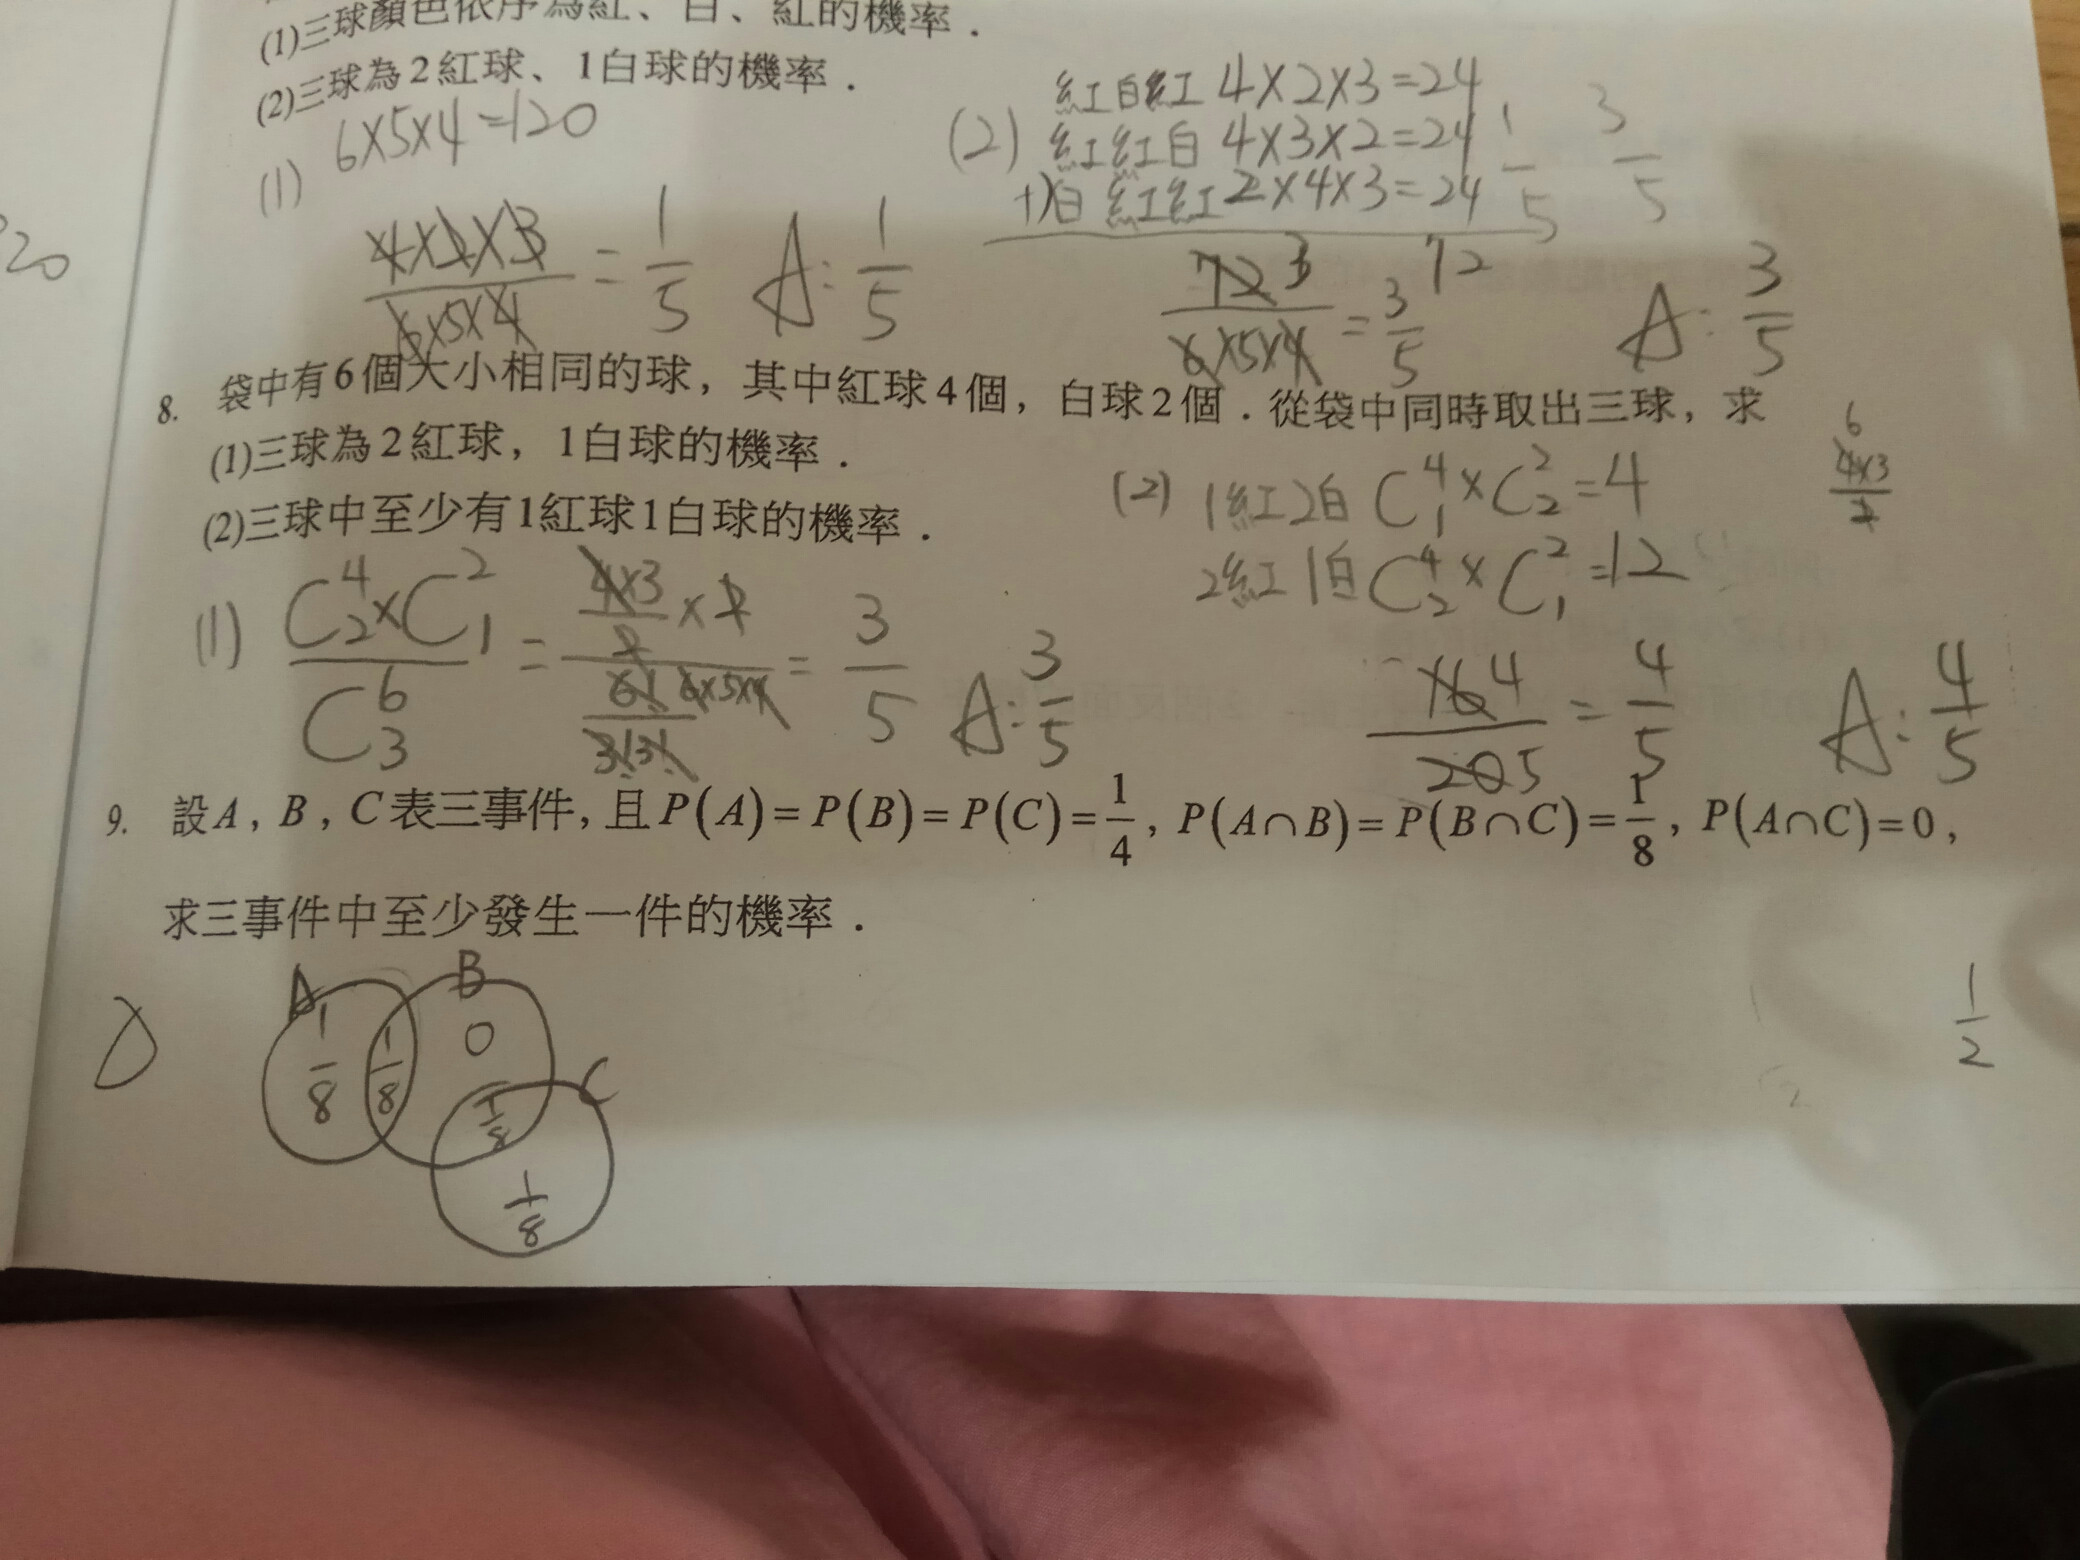 (1)三球顏色依序為紅、白、紅的機率．
(2)三球為2紅球、1白球的機率．
6×5×4=120
(1) 4×2×3/6×5×4 = 1/5 A: 1/5
(2) 紅白紅 4×2×3=24
紅紅白 4×3×2=24
+)白紅紅 2×4×3=24
72
1/5 3/5
72 3/6×5×4 = 3/5 A: 3/5
20
8. 袋中有6個大小相同的球，其中紅球4個，白球2個．從袋中同時取出三球，求
(1)三球為2紅球，1白球的機率．
(2)三球中至少有1紅球1白球的機率．
(1) C⁴₂×C²₁/C⁶₃ = 3/5 A: 3/5
(2) 1紅2白 C⁴₁×C²₂=4
2紅1白 C⁴₂×C²₁=12
6
4×3/2
16 4/20 5 = 4/5 A: 4/5
9. 設A，B，C表三事件，且P(A)=P(B)=P(C)=1/4，P(A∩B)=P(B∩C)=1/8，P(A∩C)=0，
求三事件中至少發生一件的機率．
A B C
1/8 1/8 0 1/8 1/8
1/2